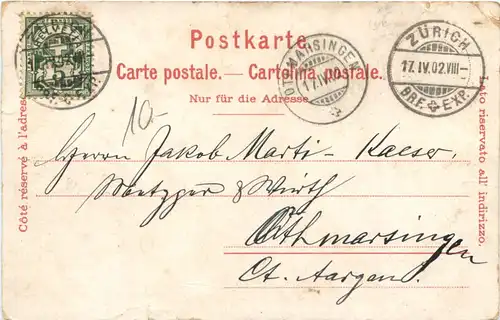 Postkarte.
Carte postale. — Cartolina postale.
Nur für die Adresse.
Côté réservé à l'adresse.
Lato riservato all' indirizzo.
HELVETIA
OTHMARSINGEN
17.IV.
ZÜRICH
17.IV.02.VIII–
BRF. EXP.
10.–
Herrn Jakob Marti-Kaeser
Metzger & Wirth
Othmarsingen
Ct. Aargau.